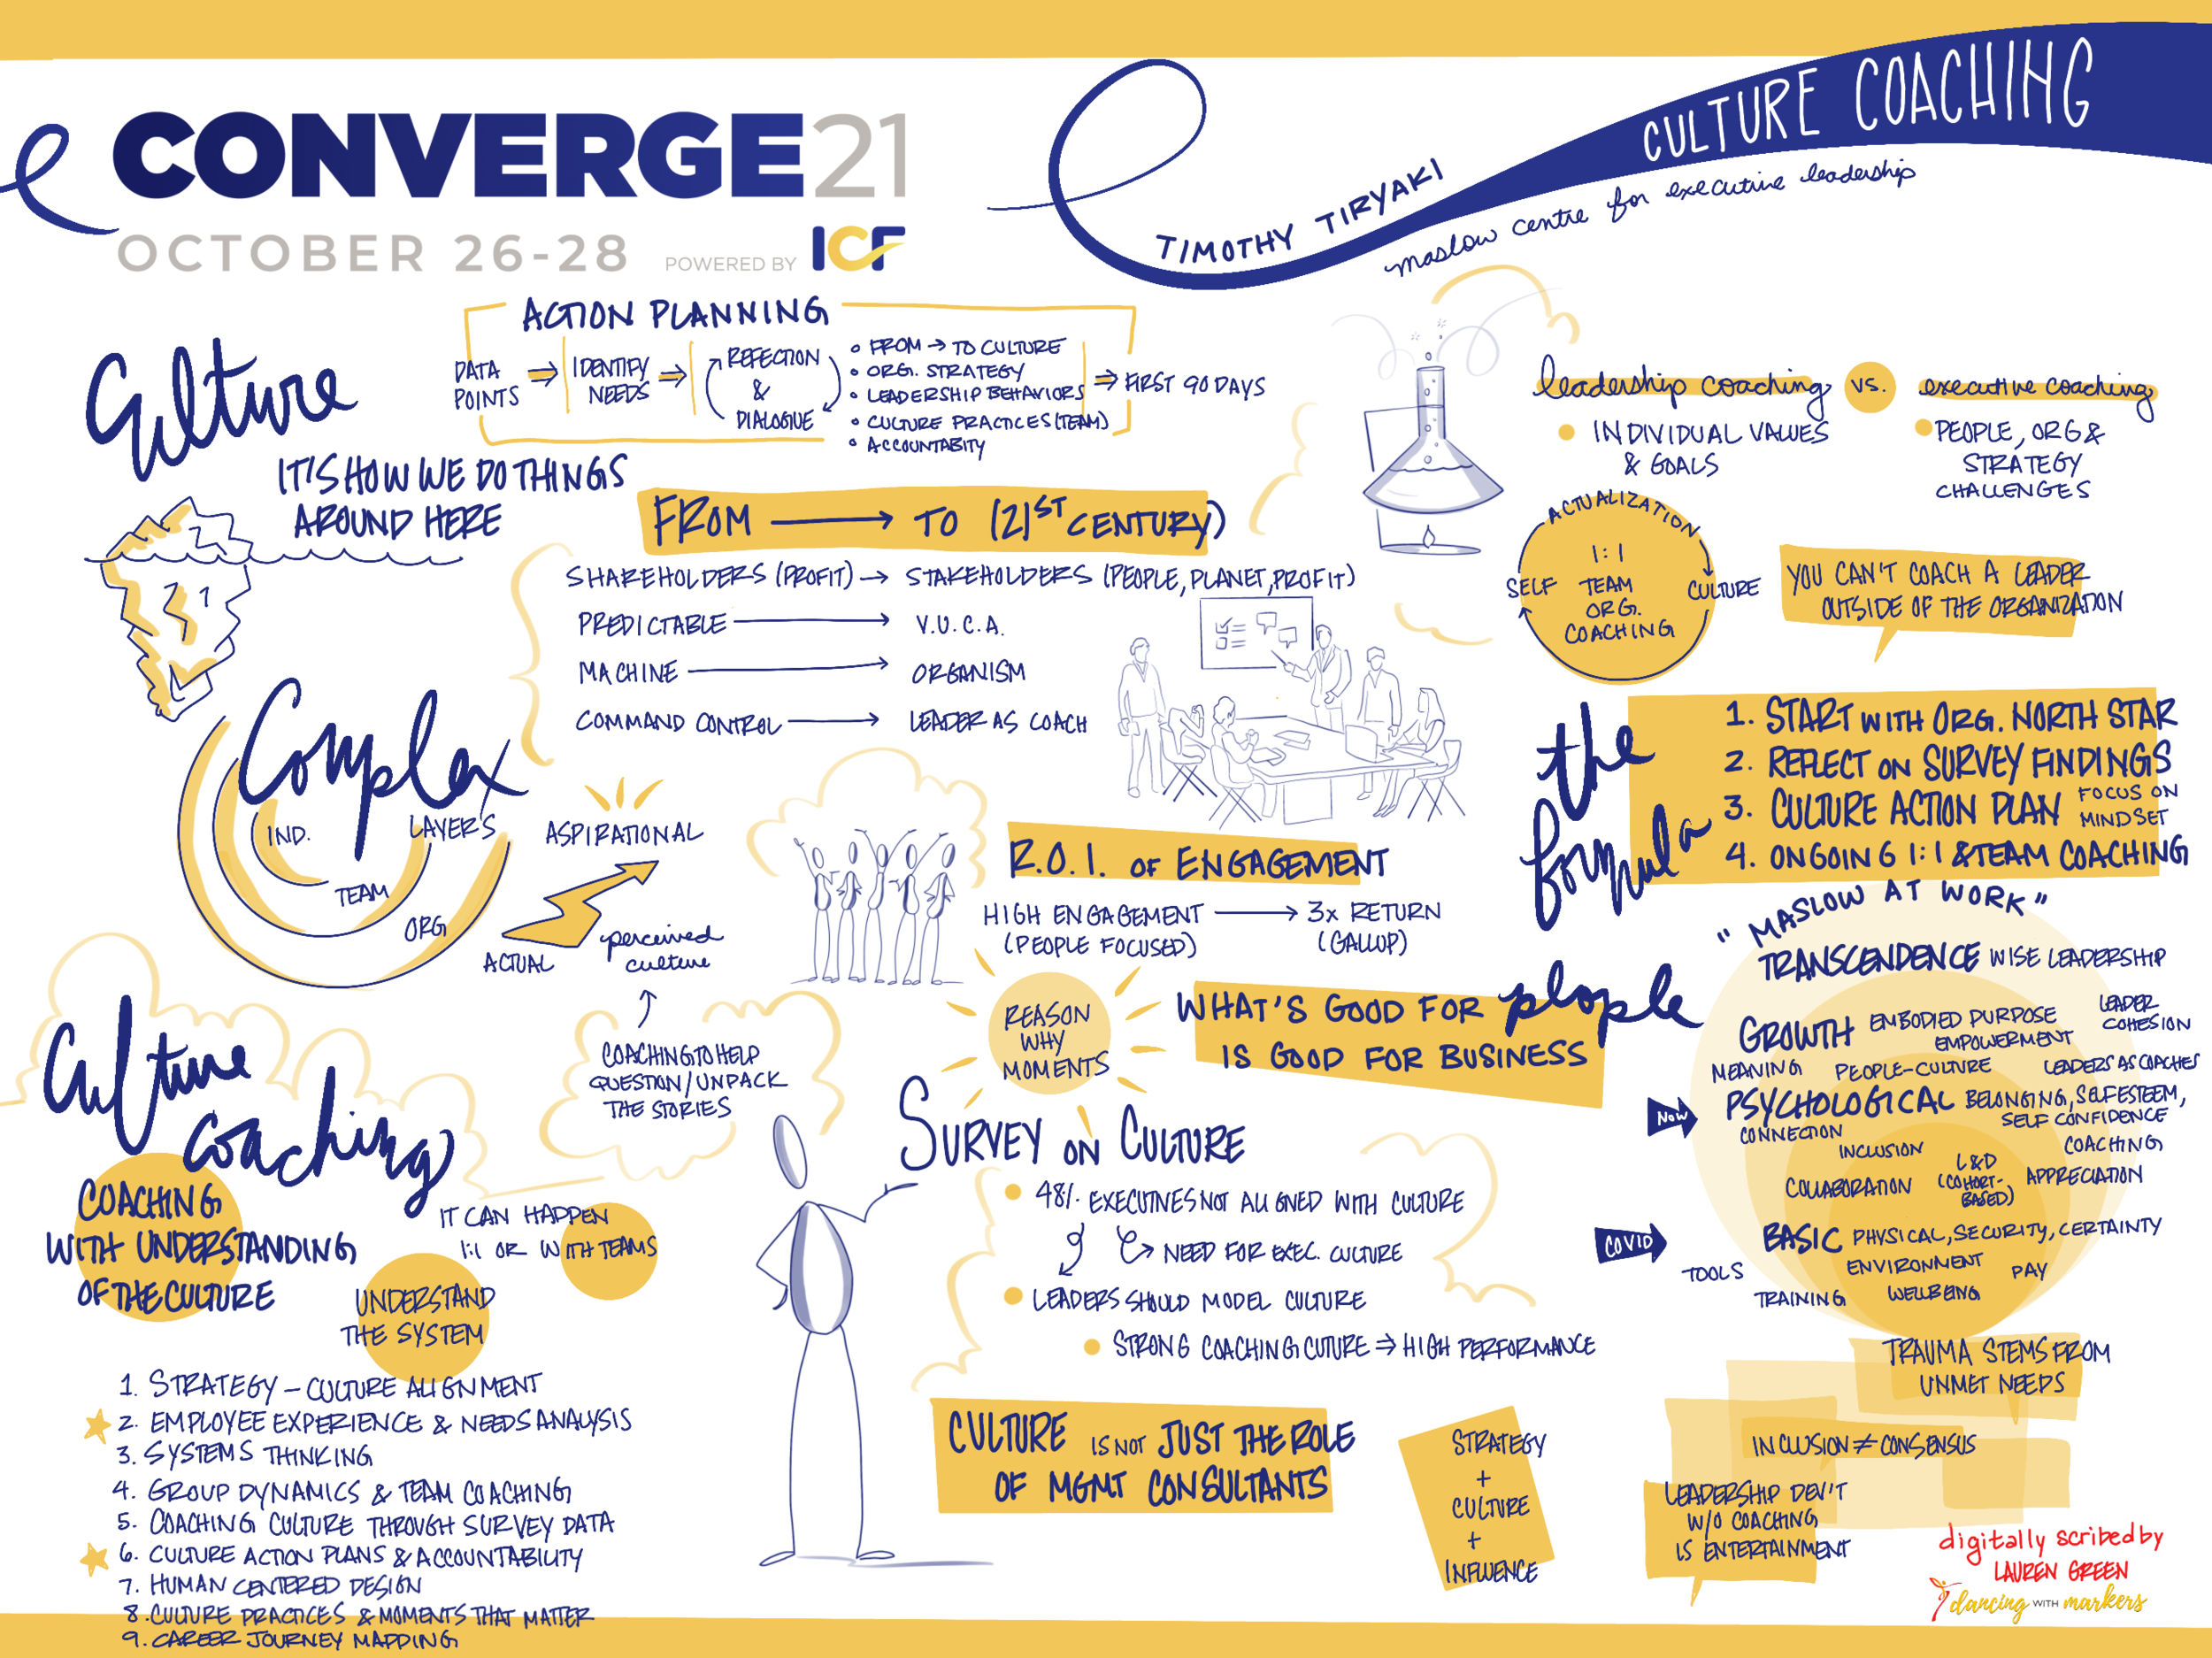 CONVERGE21
OCTOBER 26-28
POWERED BY ICF
CULTURE COACHING
TIMOTHY TIRYAKI
maslow centre for executive leadership
Culture
IT'S HOW WE DO THINGS
AROUND HERE
2
1
ACTION PLANNING
DATA
POINTS
IDENTIFY
NEEDS
REFECTION
&
DIALOGUE
FROM → TO CULTURE
ORG. STRATEGY
LEADERSHIP BEHAVIORS
CULTURE PRACTICES (TEAM)
ACCOUNTABITY
FIRST 90 DAYS
FROM → TO (21ST CENTURY)
SHAREHOLDERS (PROFIT) → STAKEHOLDERS (PEOPLE, PLANET, PROFIT)
PREDICTABLE → V.U.C.A.
MACHINE → ORGANISM
COMMAND CONTROL → LEADER AS COACH
leadership coaching vs. executive coaching
INDIVIDUAL VALUES
& GOALS
PEOPLE, ORG &
STRATEGY
CHALLENGES
ACTUALIZATION
SELF
1:1
TEAM
ORG.
COACHING
CULTURE
YOU CAN'T COACH A LEADER
OUTSIDE OF THE ORGANIZATION
Complex
LAYERS
IND.
TEAM
ORG
ASPIRATIONAL
ACTUAL
perceived
culture
COACHING TO HELP
QUESTION/UNPACK
THE STORIES
R.O.I. OF ENGAGEMENT
HIGH ENGAGEMENT → 3x RETURN
(PEOPLE FOCUSED)
(GALLUP)
REASON
WHY
MOMENTS
WHAT'S GOOD FOR people
IS GOOD FOR BUSINESS
the
formula
1. START WITH ORG. NORTH STAR
2. REFLECT ON SURVEY FINDINGS
3. CULTURE ACTION PLAN FOCUS ON
MINDSET
4. ONGOING 1:1 & TEAM COACHING
"MASLOW AT WORK"
TRANSCENDENCE WISE LEADERSHIP
GROWTH EMBODIED PURPOSE
EMPOWERMENT
LEADER
COHESION
MEANING PEOPLE-CULTURE LEADERS AS COACHES
NOW
PSYCHOLOGICAL BELONGING, SELF ESTEEM,
SELF CONFIDENCE
CONNECTION
INCLUSION
COACHING
COLLABORATION
L&D
(COHORT-
BASED)
APPRECIATION
COVID
BASIC PHYSICAL, SECURITY, CERTAINTY
TOOLS
ENVIRONMENT
PAY
TRAINING
WELLBEING
TRAUMA STEMS FROM
UNMET NEEDS
INCLUSION ≠ CONSENSUS
LEADERSHIP DEV'T
W/O COACHING
IS ENTERTAINMENT
Culture
coaching
COACHING
WITH UNDERSTANDING
OF THE CULTURE
IT CAN HAPPEN
1:1 OR WITH TEAMS
UNDERSTAND
THE SYSTEM
1. STRATEGY - CULTURE ALIGNMENT
2. EMPLOYEE EXPERIENCE & NEEDS ANALYSIS
3. SYSTEMS THINKING
4. GROUP DYNAMICS & TEAM COACHING
5. COACHING CULTURE THROUGH SURVEY DATA
6. CULTURE ACTION PLANS & ACCOUNTABILITY
7. HUMAN CENTERED DESIGN
8. CULTURE PRACTICES & MOMENTS THAT MATTER
9. CAREER JOURNEY MAPPING
SURVEY ON CULTURE
48% EXECUTIVES NOT ALIGNED WITH CULTURE
NEED FOR EXEC. CULTURE
LEADERS SHOULD MODEL CULTURE
STRONG COACHING CUTURE ⇒ HIGH PERFORMANCE
CULTURE IS NOT JUST THE ROLE
OF MGMT CONSULTANTS
STRATEGY
+
CULTURE
+
INFLUENCE
digitally scribed by
LAUREN GREEN
dancing WITH markers